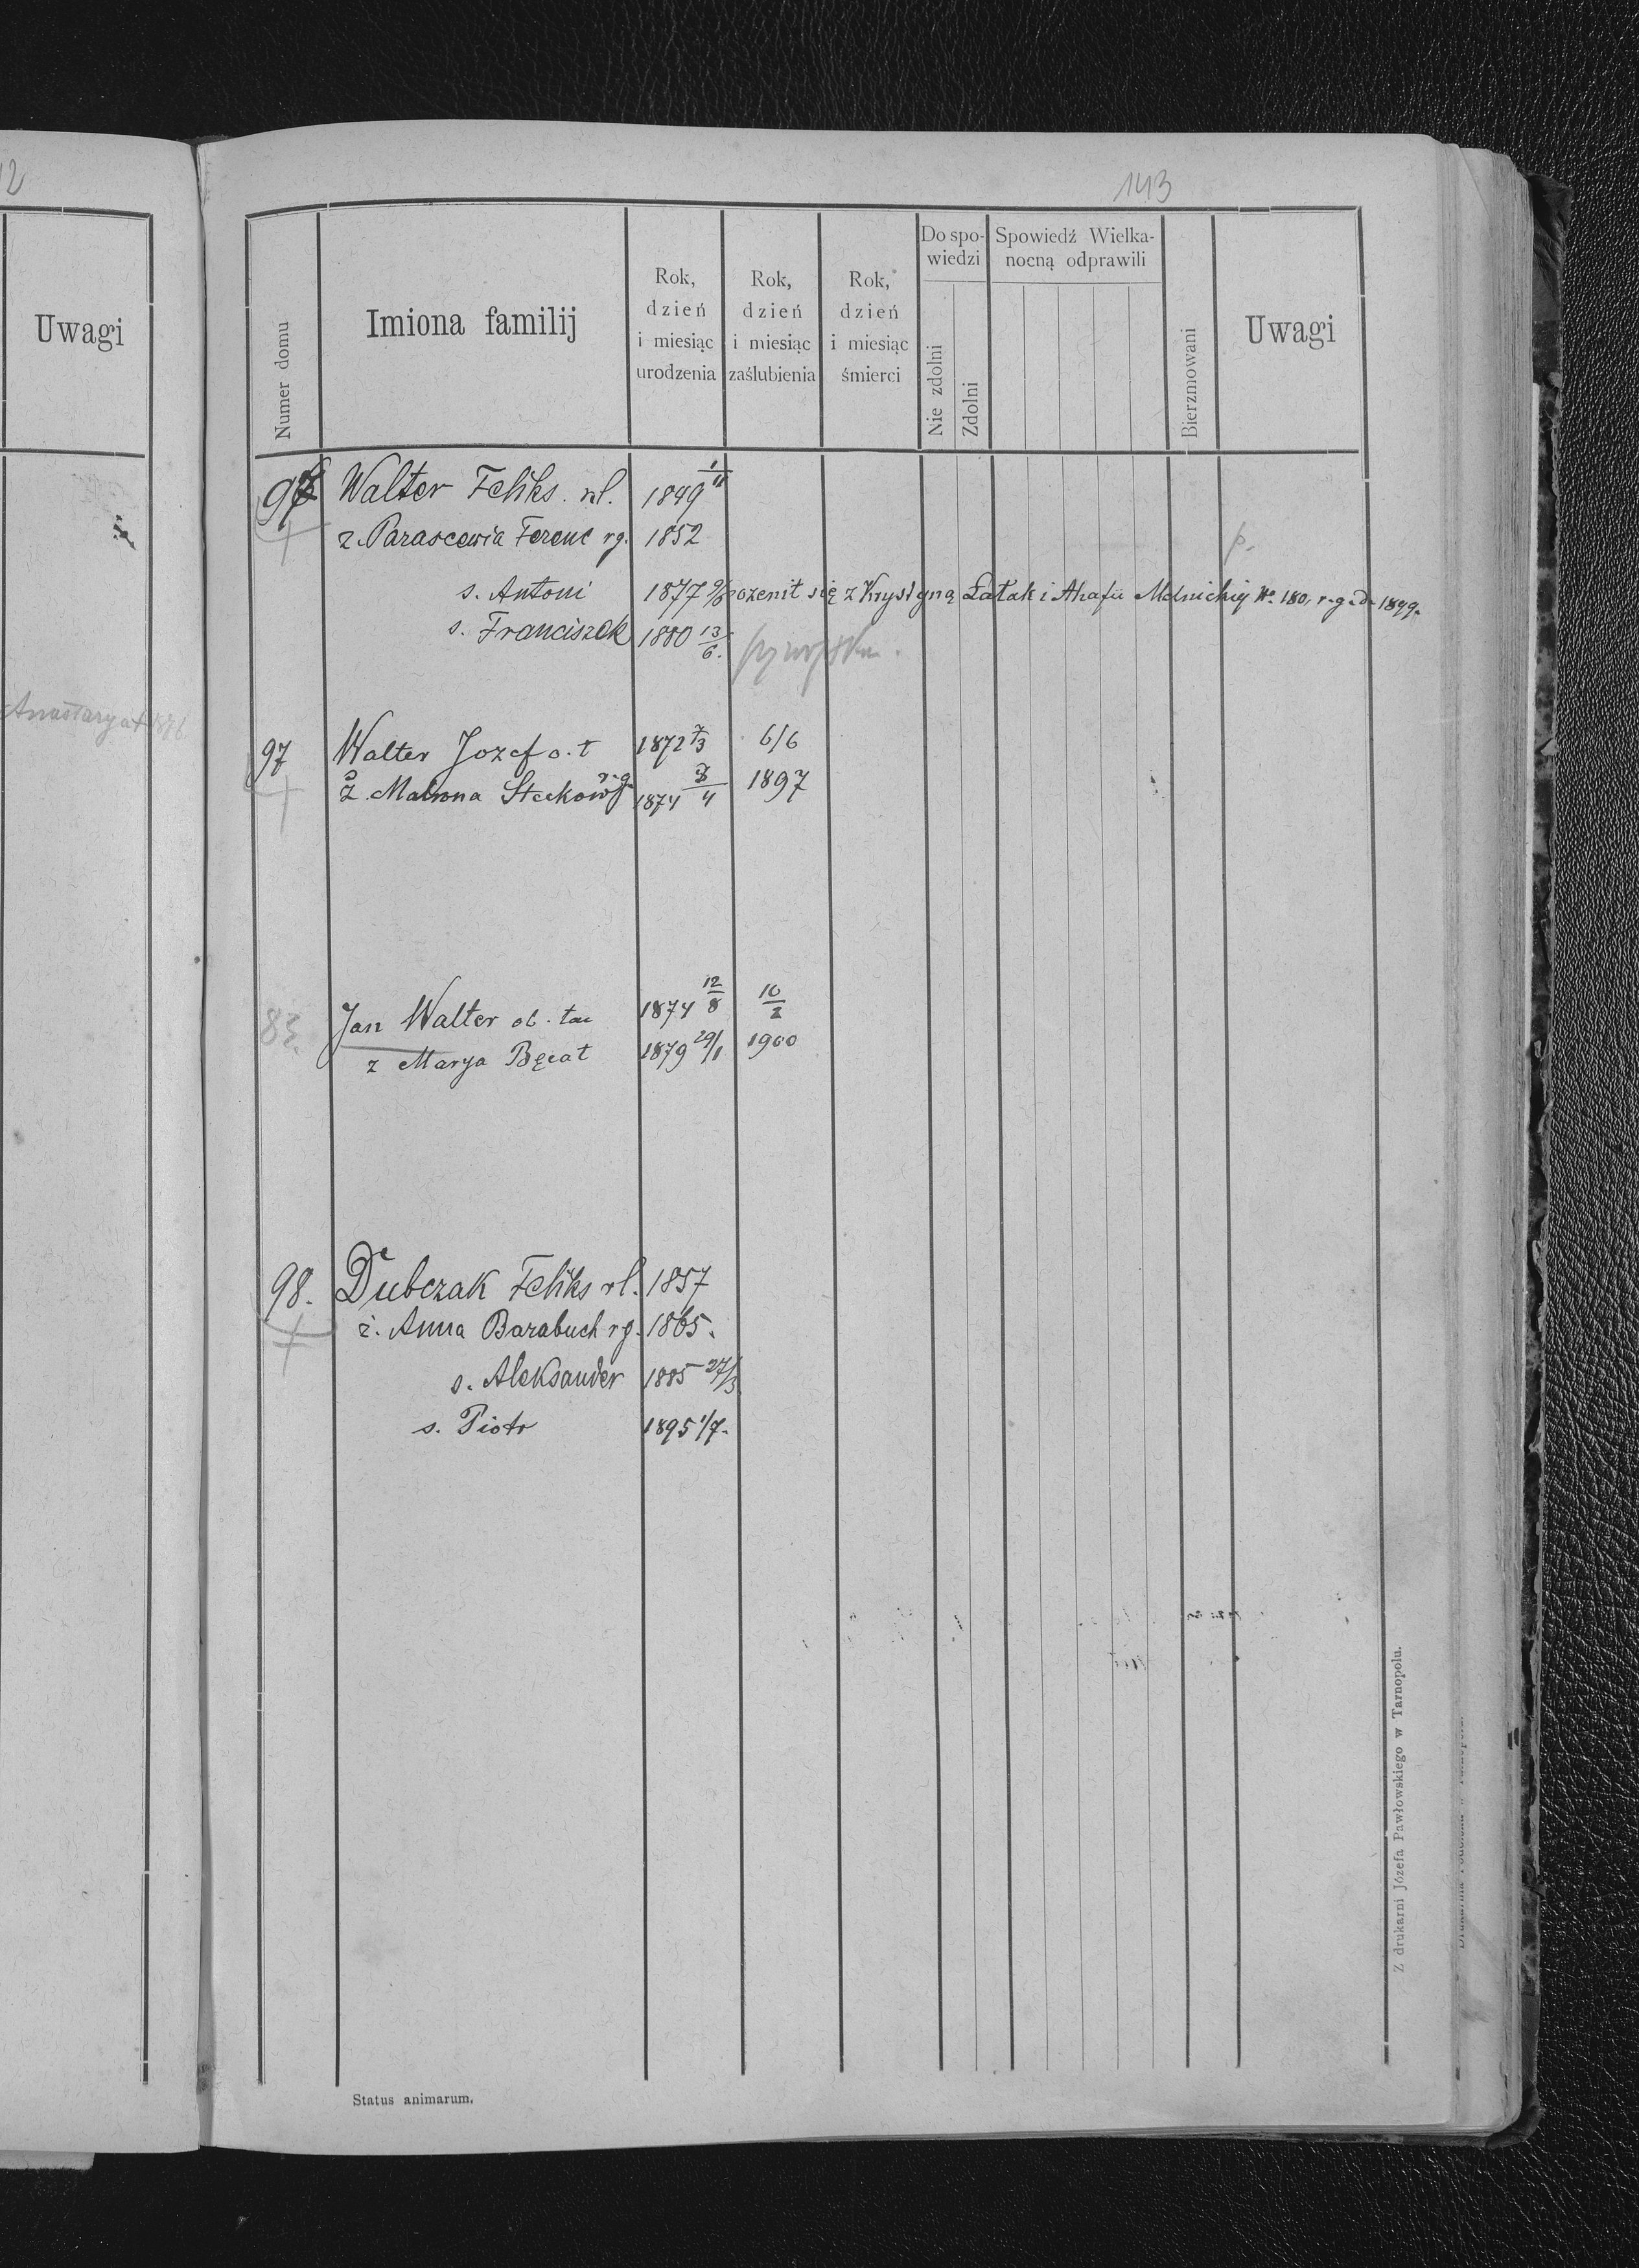 12
Uwagi
143
Numer domu
Imiona familij
Rok, dzień i miesiąc urodzenia
Rok, dzień i miesiąc zaślubienia
Rok, dzień i miesiąc śmierci
Do spowiedzi
Nie zdolni
Zdolni
Spowiedź Wielkanocną odprawili
Bierzmowani
Uwagi
97 Walter Feliks rl. 1849 1/11
z. Parascewia Ferenc rg. 1852 p.
s. Antoni 1877 9/6 ożenił się z Krystyną Łatak i Ahafii Melnickiej No. 180, r.g. d. 1899.
s. Franciszek 1880 13/6.
97 Walter Jozef o.t 1872 7/3 6/6
ż. Malwna r.g. 1874 4 1897
83. Jan Walter ob. tac 1874 12/8 10/2
z Marya Bęcat 1879 29/1 1900
98. Dubczak Feliks rl. 1857
ż. Anna Barabuch rg. 1865.
s. Aleksander 1885 27/3
s. Piotr 1895 1/7.
Status animarum.
Z drukarni Józefa Pawłowskiego w Tarnopolu.